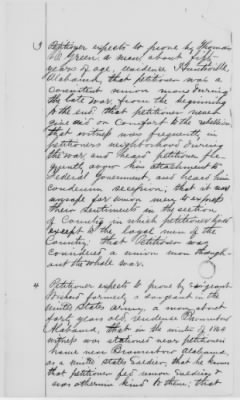 3 Petitioner expects to prove by Thomas
W. Green a man about fifty
years of age, residence Huntsville,
Alabama, that petitioner was a
consistent union man during
the late war from the beginning
to the end. that petitioner never
give aid or comfort to the rebellion
that witness was frequently in
petitioners neighborhood during
the war and heard petitioner
argue attachment to
Federal Government, and heard him
condemn secession; that it was
unsafe for union men to express
their sentiments in the section
of Country in which petitioner lived
except to the loyal men of the
Country; that Petitioner was
considered a union man through-
out the whole war.
4 Petitioner expects to prove by
formerly a sergeant in the
United States army, a man about
forty years old, residence Brownsboro
Alabama, that in the winter of 1864
witness was stationed near petitioners
home near Brownsboro Alabama,
as a United States Soldier, that he knows
that petitioner fed union Soldiers &
was otherwise kind to them; that